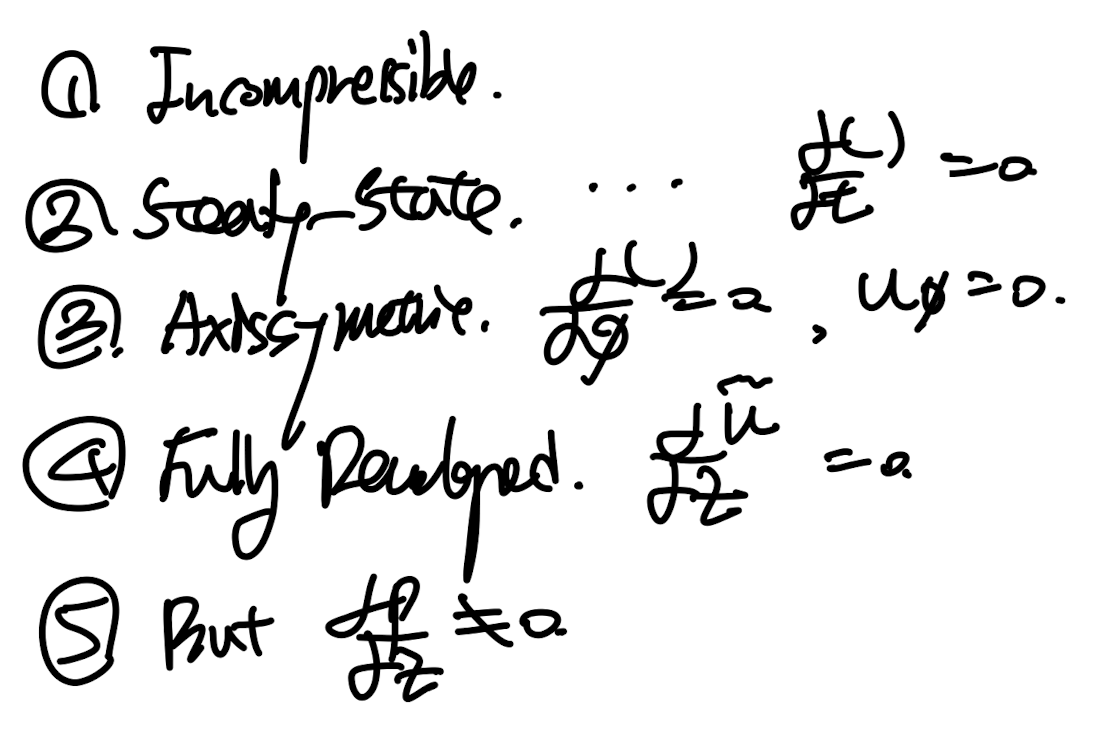 ① Incompressible.
② Steady-State. ... ∂( )/∂t = 0
③ Axissymetric. ∂( )/∂φ = 0, uφ = 0.
④ Fully Developed. ∂ũ/∂z = 0.
⑤ But ∂P/∂z ≠ 0.